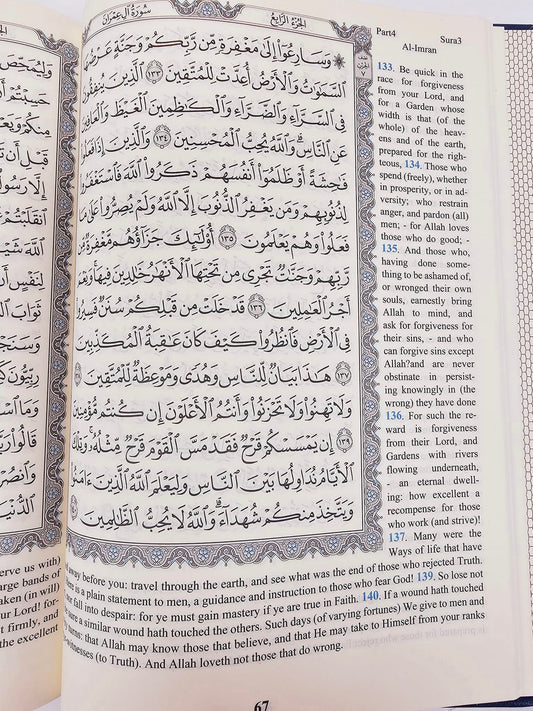 الجُزءُ الرَّابِعُ
سُورَةُ آلِ عِمْرَان
Part4 Sura3
Al-Imran
وَسَارِعُوٓا۟ إِلَىٰ مَغْفِرَةٍ مِّن رَّبِّكُمْ وَجَنَّةٍ عَرْضُهَا
ٱلسَّمَٰوَٰتُ وَٱلْأَرْضُ أُعِدَّتْ لِلْمُتَّقِينَ ١٣٣ ٱلَّذِينَ يُنفِقُونَ
فِى ٱلسَّرَّآءِ وَٱلضَّرَّآءِ وَٱلْكَٰظِمِينَ ٱلْغَيْظَ وَٱلْعَافِينَ
عَنِ ٱلنَّاسِ وَٱللَّهُ يُحِبُّ ٱلْمُحْسِنِينَ ١٣٤ وَٱلَّذِينَ إِذَا فَعَلُوا۟
فَٰحِشَةً أَوْ ظَلَمُوٓا۟ أَنفُسَهُمْ ذَكَرُوا۟ ٱللَّهَ فَٱسْتَغْفَرُوا۟
لِذُنُوبِهِمْ وَمَن يَغْفِرُ ٱلذُّنُوبَ إِلَّا ٱللَّهُ وَلَمْ يُصِرُّوا۟ عَلَىٰ مَا
فَعَلُوا۟ وَهُمْ يَعْلَمُونَ ١٣٥ أُو۟لَٰٓئِكَ جَزَآؤُهُم مَّغْفِرَةٌ مِّن
رَّبِّهِمْ وَجَنَّٰتٌ تَجْرِى مِن تَحْتِهَا ٱلْأَنْهَٰرُ خَٰلِدِينَ فِيهَا وَنِعْمَ
أَجْرُ ٱلْعَٰمِلِينَ ١٣٦ قَدْ خَلَتْ مِن قَبْلِكُمْ سُنَنٌ فَسِيرُوا۟
فِى ٱلْأَرْضِ فَٱنظُرُوا۟ كَيْفَ كَانَ عَٰقِبَةُ ٱلْمُكَذِّبِينَ
١٣٧ هَٰذَا بَيَانٌ لِّلنَّاسِ وَهُدًى وَمَوْعِظَةٌ لِّلْمُتَّقِينَ
وَلَا تَهِنُوا۟ وَلَا تَحْزَنُوا۟ وَأَنتُمُ ٱلْأَعْلَوْنَ إِن كُنتُم مُّؤْمِنِينَ
١٣٩ إِن يَمْسَسْكُمْ قَرْحٌ فَقَدْ مَسَّ ٱلْقَوْمَ قَرْحٌ مِّثْلُهُۥ وَتِلْكَ
ٱلْأَيَّامُ نُدَاوِلُهَا بَيْنَ ٱلنَّاسِ وَلِيَعْلَمَ ٱللَّهُ ٱلَّذِينَ ءَامَنُوا۟
وَيَتَّخِذَ مِنكُمْ شُهَدَآءَ وَٱللَّهُ لَا يُحِبُّ ٱلظَّٰلِمِينَ
133. Be quick in the
race for forgiveness
from your Lord, and
for a Garden whose
width is that (of the
whole) of the heav-
ens and of the earth,
prepared for the righ-
teous, 134. Those who
spend (freely), whether
in prosperity, or in ad-
versity; who restrain
anger, and pardon (all)
men; - for Allah loves
those who do good; -
135. And those who,
having done some-
thing to be ashamed of,
or wronged their own
souls, earnestly bring
Allah to mind, and
ask for forgiveness for
their sins, - and who
can forgive sins except
Allah?and are never
obstinate in persist-
ing knowingly in (the
wrong) they have done
136. For such the re-
ward is forgiveness
from their Lord, and
Gardens with rivers
flowing underneath,
- an eternal dwell-
ing: how excellent a
recompense for those
who work (and strive)!
137. Many were the
Ways of life that have
away before you: travel through the earth, and see what was the end of those who rejected Truth.
is a plain statement to men, a guidance and instruction to those who fear God! 139. So lose not
fall into despair: for ye must gain mastery if ye are true in Faith. 140. If a wound hath touched
a similar wound hath touched the others. Such days (of varying fortunes) We give to men and
turns: that Allah may know those that believe, and that He may take to Himself from your ranks
witnesses (to Truth). And Allah loveth not those that do wrong.
67
وَلِيُمَحِّصَ
حَسِبْتُمْ
مِنكُمْ
قَبْلِ أَن
إِلَّا رَسُولٌ
ٱنقَلَبْتُمْ
ٱللَّهَ
لِنَفْسٍ أَن
ثَوَابَ
رِبِّيُّونَ
وَمَا
قَالُوا۟
وَٱنصُرْنَا
ٱلدُّنْيَا
erve us with)
large bands of
aken (in will)
our Lord! for-
t firmly, and
the excellent